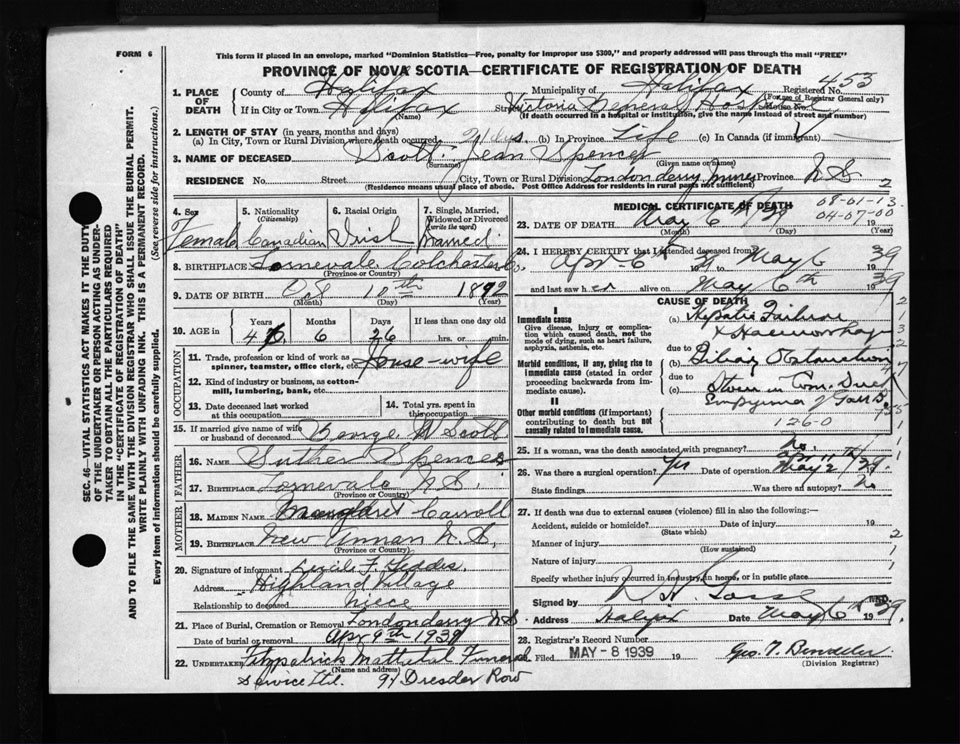 FORM 6
This form if placed in an envelope, marked "Dominion Statistics—Free, penalty for improper use $300," and properly addressed will pass through the mail "FREE"
PROVINCE OF NOVA SCOTIA—CERTIFICATE OF REGISTRATION OF DEATH
1. PLACE OF DEATH
County of Halifax Municipality of Halifax Registered No. 453
(For use of Registrar General only)
If in City or Town Halifax Street Victoria General Hospital
(Name) (If death occurred in a hospital or institution, give the name instead of street and number)
2. LENGTH OF STAY (in years, months and days)
(a) In City, Town or Rural Division where death occurred (b) In Province Life (c) In Canada (if immigrant)
3. NAME OF DECEASED Scott Jean Spencer
(Surname) (Given name or names)
RESIDENCE No. Street City, Town or Rural Division Londonderry Mines Province N S 2
(Residence means usual place of abode. Post Office Address for residents in rural parts not sufficient)
SEC. 46—VITAL STATISTICS ACT MAKES IT THE DUTY
OF THE UNDERTAKER OR PERSON ACTING AS UNDER-
TAKER TO OBTAIN ALL THE PARTICULARS REQUIRED
IN THE "CERTIFICATE OF REGISTRATION OF DEATH"
AND TO FILE THE SAME WITH THE DIVISION REGISTRAR WHO SHALL ISSUE THE BURIAL PERMIT.
WRITE PLAINLY WITH UNFADING INK. THIS IS A PERMANENT RECORD.
Every item of information should be carefully supplied. (See reverse side for instructions.)
4. Sex
Female
5. Nationality
(Citizenship)
Canadian
6. Racial Origin
Irish
7. Single, Married, Widowed or Divorced
(write the word)
Married
8. BIRTHPLACE Lornevale Colchester Co.
(Province or Country)
9. DATE OF BIRTH Oct 10th 1892
(Month) (Day) (Year)
10. AGE in
Years Months Days If less than one day old
46 6 26 hrs. or min.
OCCUPATION
11. Trade, profession or kind of work as spinner, teamster, office clerk, etc. House-wife
12. Kind of industry or business, as cotton-mill, lumbering, bank, etc.
13. Date deceased last worked at this occupation
14. Total yrs. spent in this occupation
15. If married give name of wife or husband of deceased George W Scott
FATHER
16. Name Suther Spencer
17. Birthplace Lornevale N.S.
(Province or Country)
MOTHER
18. Maiden Name Margaret Carroll
19. Birthplace New Annan N.S.
(Province or Country)
20. Signature of informant Lucile F. Geddes
Address Highland Village
Relationship to deceased niece
21. Place of Burial, Cremation or Removal Londonderry N S
Date of burial or removal 9th 1939
22. Undertaker Fitzpatrick Mattatal Funeral
(Name and address)
Service Ltd. 97 Dresden Row
MEDICAL CERTIFICATE OF DEATH
08-01-13
04-07-00
23. DATE OF DEATH May 6th 39
(Month) (Day) (Year)
24. I HEREBY CERTIFY that I attended deceased from
Apr-6th 39 May 6 19 39
and last saw her alive on May 6th 19 39
CAUSE OF DEATH
I
Immediate cause
Give disease, injury or complication which caused death, not the mode of dying, such as heart failure, asphyxia, asthenia, etc.
(a) Hepatic Failure
+ Haemorrhage
due to
Morbid conditions, if any, giving rise to immediate cause (stated in order proceeding backwards from immediate cause).
(b) Biliary Obstruction
due to
(c) Stone in Com. Duct
II
Other morbid conditions (if important) contributing to death but not causally related to immediate cause.
Empyema of Gall B.
126-0
25. If a woman, was the death associated with pregnancy? No
26. Was there a surgical operation? Yes Date of operation May 2 39
State findings Was there an autopsy? No
27. If death was due to external causes (violence) fill in also the following:—
Accident, suicide or homicide? Date of injury 19
(State which)
Manner of injury
(How sustained)
Nature of injury
Specify whether injury occurred in industry, in home, or in public place
Signed by M.D.
Address Halifax Date May 6th 1939
28. Registrar's Record Number
Filed MAY - 8 1939 19 Geo. T.
(Division Registrar)